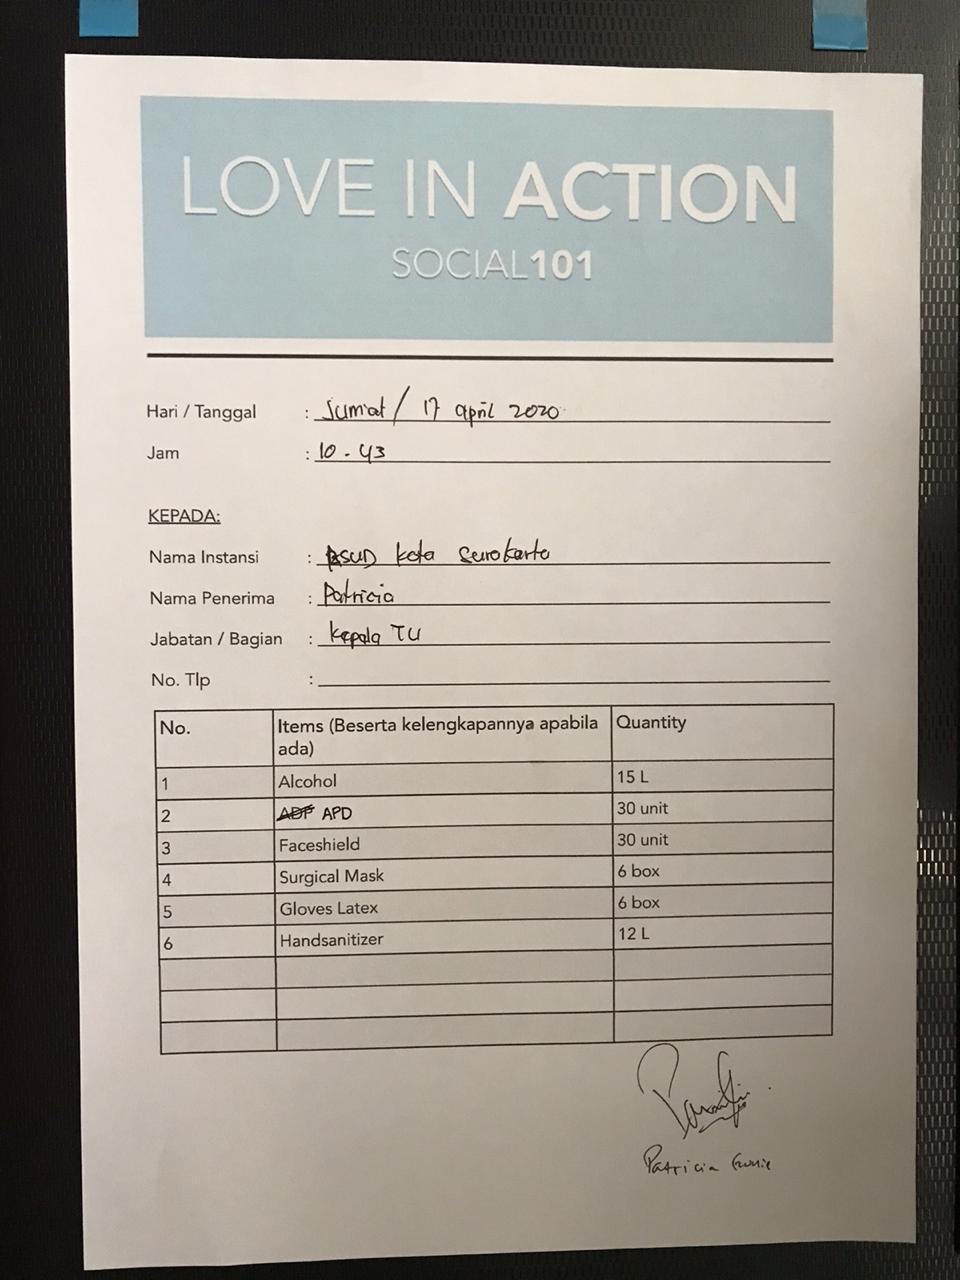 LOVE IN ACTION
SOCIAL101
Hari / Tanggal : Jumat / 17 april 2020
Jam : 10 - 43
KEPADA:
Nama Instansi : RSUD Kota Surakarta
Nama Penerima : Patricia
Jabatan / Bagian : Kepala TU
No. Tlp :
No. Items (Beserta kelengkapannya apabila ada) Quantity
1 Alcohol 15 L
2 ADP APD 30 unit
3 Faceshield 30 unit
4 Surgical Mask 6 box
5 Gloves Latex 6 box
6 Handsanitizer 12 L
Patricia